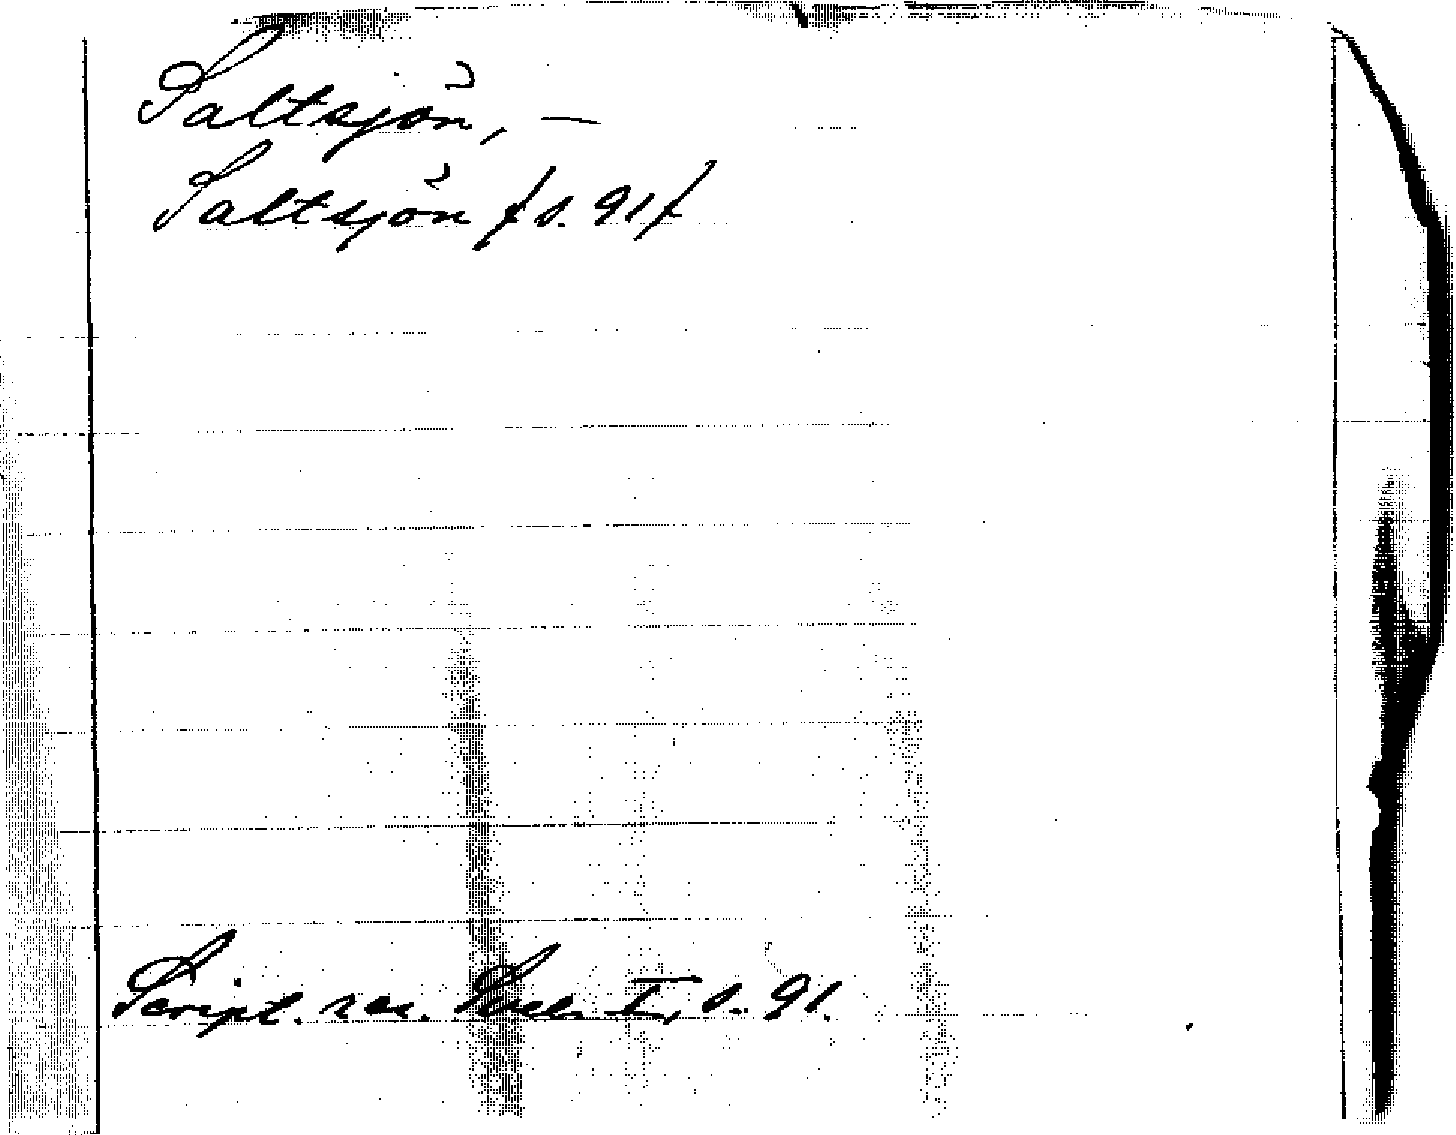 Saltsjön, —
Saltsjön /s. 91/
Script. rer. Svec. I, s. 91.